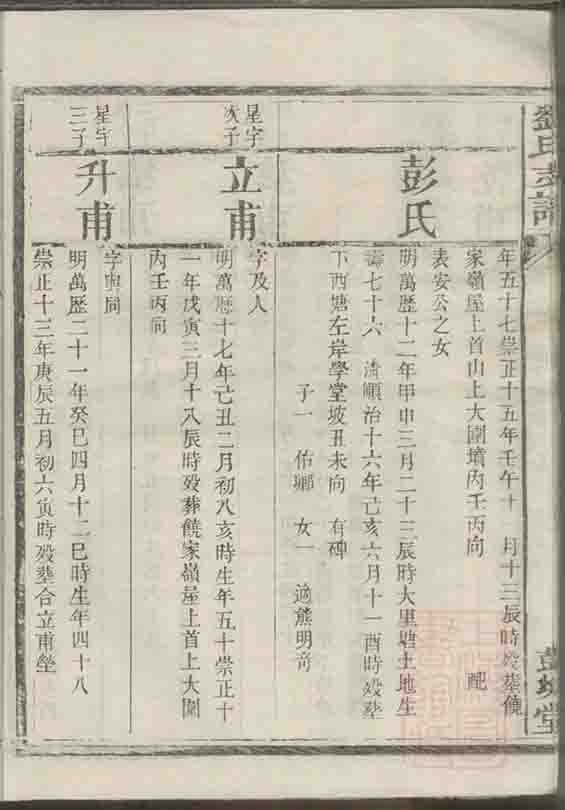 劉氏支譜
彭城堂
年五十七崇正十五年壬午十 月十三辰時歿葬饒
家嶺屋上首山上大圍墳內壬丙向 配
彭氏
表安公之女
明萬歷十二年甲申三月二十三辰時大里塘土地生
壽七十六 清順治十六年己亥六月十一酉時歿塟
下西塘左岸學堂坡丑未向 有碑
子一 佑鄉 女一 適熊明奇
星宇
次子
立甫
字及人
明萬歷十七年己丑二月初八亥時生年五十崇正十
一年戊寅三月十八辰時歿葬饒家嶺屋上首上大圍
內壬丙向
星宇
三子
升甫
字寅同
明萬歷二十一年癸巳四月十二巳時生年四十八
崇正十三年庚辰五月初六寅時歿塟合立甫塋